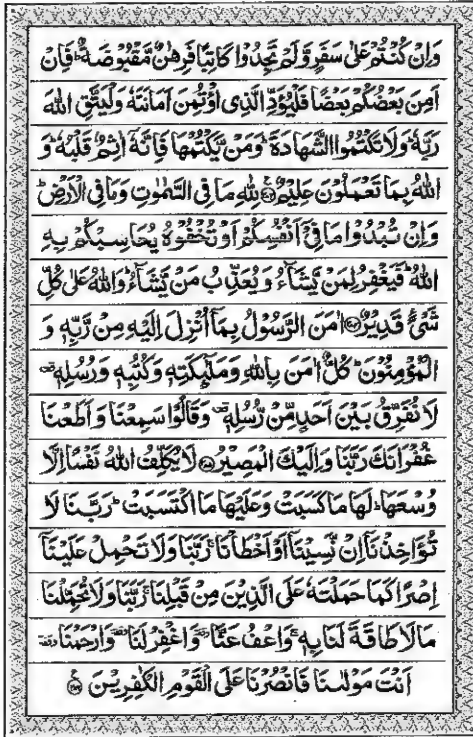 وَاِنْ كُنْتُمْ عَلٰى سَفَرٍ وَّلَمْ تَجِدُوْا كَاتِبًا فَرِهٰنٌ مَّقْبُوْضَةٌ ؕ فَاِنْ
اَمِنَ بَعْضُكُمْ بَعْضًا فَلْيُؤَدِّ الَّذِى اؤْتُمِنَ اَمَانَتَهٗ وَلْيَتَّقِ اللّٰهَ
رَبَّهٗ ؕ وَلَا تَكْتُمُوا الشَّهَادَةَ ؕ وَمَنْ يَّكْتُمْهَا فَاِنَّهٗۤ اٰثِمٌ قَلْبُهٗ ؕ وَ
اللّٰهُ بِمَا تَعْمَلُوْنَ عَلِيْمٌ ۝۲۸۳ لِلّٰهِ مَا فِى السَّمٰوٰتِ وَمَا فِى الْاَرْضِ ؕ
وَاِنْ تُبْدُوْا مَا فِىْۤ اَنْفُسِكُمْ اَوْ تُخْفُوْهُ يُحَاسِبْكُمْ بِهِ
اللّٰهُ ؕ فَيَغْفِرُ لِمَنْ يَّشَآءُ وَيُعَذِّبُ مَنْ يَّشَآءُ ؕ وَاللّٰهُ عَلٰى كُلِّ
شَىْءٍ قَدِيْرٌ ۝۲۸۴ اٰمَنَ الرَّسُوْلُ بِمَاۤ اُنْزِلَ اِلَيْهِ مِنْ رَّبِّهٖ وَ
الْمُؤْمِنُوْنَ ؕ كُلٌّ اٰمَنَ بِاللّٰهِ وَمَلٰٓئِكَتِهٖ وَكُتُبِهٖ وَرُسُلِهٖ
لَا نُفَرِّقُ بَيْنَ اَحَدٍ مِّنْ رُّسُلِهٖ وَقَالُوْا سَمِعْنَا وَاَطَعْنَا
غُفْرَانَكَ رَبَّنَا وَاِلَيْكَ الْمَصِيْرُ ۝۲۸۵ لَا يُكَلِّفُ اللّٰهُ نَفْسًا اِلَّا
وُسْعَهَا ؕ لَهَا مَا كَسَبَتْ وَعَلَيْهَا مَا اكْتَسَبَتْ ؕ رَبَّنَا لَا
تُؤَاخِذْنَاۤ اِنْ نَّسِيْنَاۤ اَوْ اَخْطَاْنَا ۚ رَبَّنَا وَلَا تَحْمِلْ عَلَيْنَاۤ
اِصْرًا كَمَا حَمَلْتَهٗ عَلَى الَّذِيْنَ مِنْ قَبْلِنَا ۚ رَبَّنَا وَلَا تُحَمِّلْنَا
مَا لَا طَاقَةَ لَنَا بِهٖ ۚ وَاعْفُ عَنَّا وَاغْفِرْ لَنَا وَارْحَمْنَا
اَنْتَ مَوْلٰىنَا فَانْصُرْنَا عَلَى الْقَوْمِ الْكٰفِرِيْنَ ۝۲۸۶